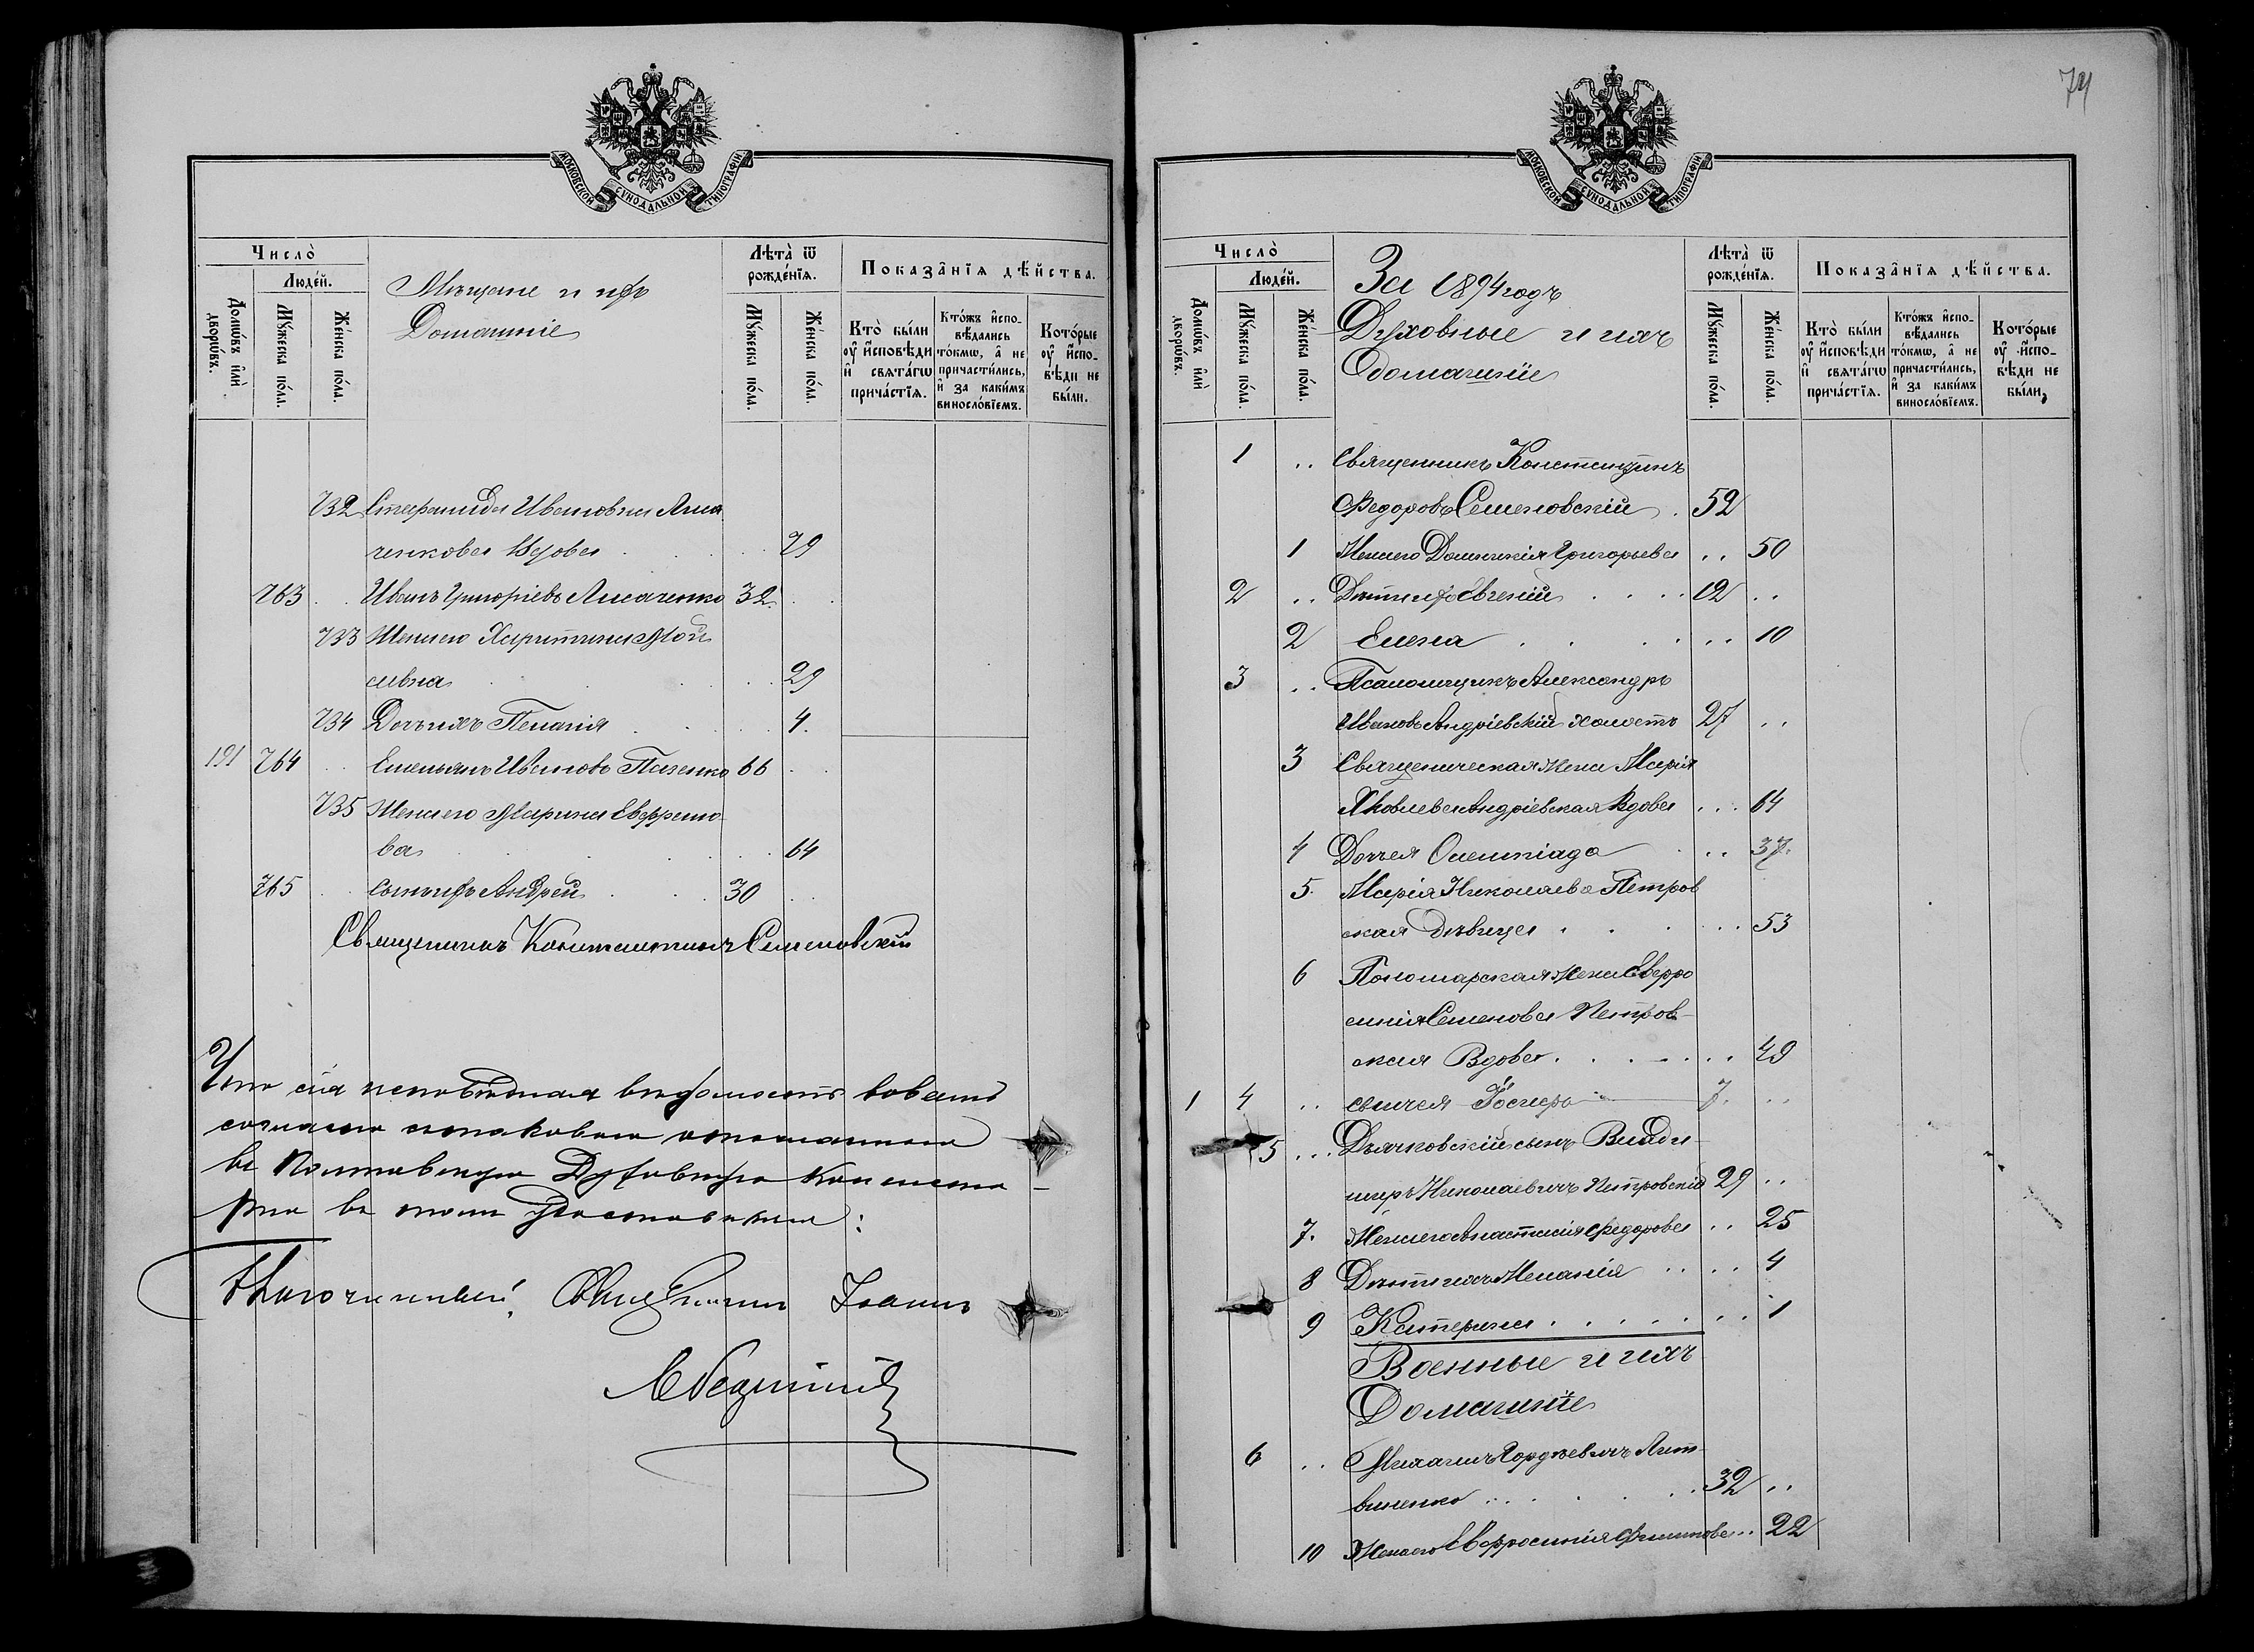 МОСКОВСКОЙ СУНОДАЛЬНОЙ ТИПОГРАФІИ
Число̀
Людéй.
Домѡ́въ и҆лѝ дворѡ́въ.
Мꙋ́жеска по́ла.
Же́нска по́ла.
Мѣщане и ихъ
Домашніе
Лѣта̀ ѿ рожде́нїѧ.
Мꙋ́жеска по́ла.
Же́нска по́ла.
Показа̑нїѧ дѣ́йства.
Кто̀ бы́ли оу҆ и҆сповѣ́ди и҆ свѧта́гѡ прича́стїѧ.
Кто́жъ и҆спо-вѣ́дались то́кмѡ, а҆ не причасти́лись, и҆ за каки́мъ виносло́вїемъ.
Кото́рые оу҆ и҆спо-вѣ́ди не бы́ли.
732 Стефанида Ивановна Лиса
ченкова Вдова 79
763 Иванъ Григоріевъ Лисаченко 32
733 Жена его Харитина Мои
сѣвна 29
734 Дочь ихъ Пелагія 4
191 764 Емельянъ Ивановъ 66
735 Жена его Марина Евфремо-
ва 64
765 Сынъ ихъ Андрей 30
Священникъ Константинъ Семеновскій
Что сія исповѣдная вѣдомость во всемъ
согласна съ таковою отосланною
въ Полтавскую Духовную Консисто-
рію въ томъ удостовѣряю:
Благочинный, Священникъ Іоаннъ
74
МОСКОВСКОЙ СУНОДАЛЬНОЙ ТИПОГРАФІИ
Число̀
Людéй.
Домѡ́въ и҆лѝ дворѡ́въ.
Мꙋ́жеска по́ла.
Же́нска по́ла.
За 1894 годъ
Духовные и ихъ
домашніе
Лѣта̀ ѿ рожде́нїѧ.
Мꙋ́жеска по́ла.
Же́нска по́ла.
Показа̑нїѧ дѣ́йства.
Кто̀ бы́ли оу҆ и҆сповѣ́ди и҆ свѧта́гѡ прича́стїѧ.
Кто́жъ и҆спо-вѣ́дались то́кмѡ, а҆ не причасти́лись, и҆ за каки́мъ виносло́вїемъ.
Кото́рые оу҆ и҆спо-вѣ́ди не бы́ли,
1 Священникъ Константинъ
Федоровъ Семеновскій 52
1 Жена его Домникія Григорьева 50
2 Дѣти ихъ Евгеній 12
2 Елена 10
3 Псаломщикъ Александръ
Ивановъ Андріевскій холостъ 27
3 Священическая жена Марія
Яковлева Андріевская Вдова 64
4 Дочь ея Олимпіада 37
5 Марія Николаева Петров
ская дѣвица 53
6 Пономарская жена Евфро
синія Семенова Петров-
ская Вдова 49
1 4 сынъ ея Іосифъ 7
5 Дьячковскій сынъ Влади-
миръ Николаевичъ Петровскій 29
7 Жена его Анастасія Федорова 25
8 Дѣти ихъ Меланія 4
9 Катерина 1
Военные и ихъ
Домашніе
6 Михаилъ Гордѣевичъ Лит-
виненко 32
10 Жена его Евфросинія Филипова 22